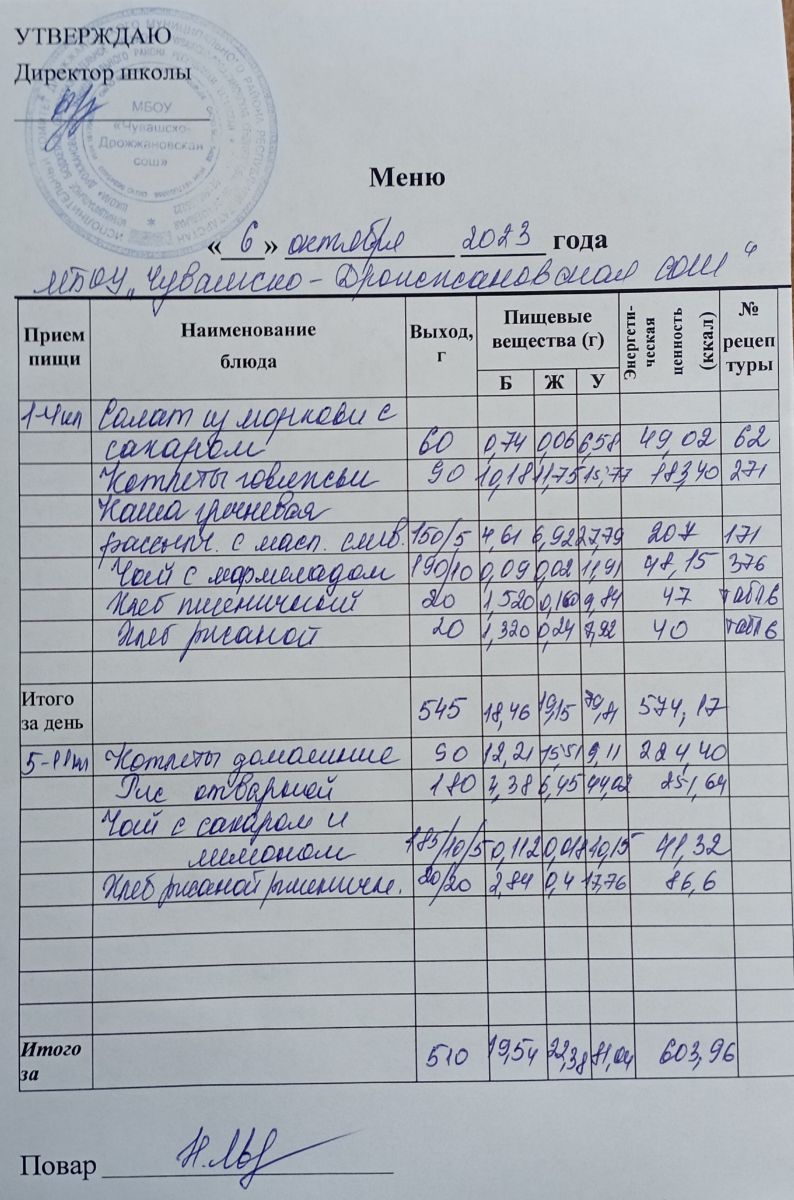 УТВЕРЖДАЮ
Директор школы
МБОУ
«Чувашско-
Дрожжановская
сош»
Меню
«6» октября 2023 года
МБОУ "Чувашско-Дрожжановская сош"
Прием пищи Наименование блюда Выход, г Пищевые вещества (г) Энергети-ческая ценность (ккал) № рецеп туры
Б Ж У
1-4кл Салат из моркови с
сахаром 60 0,74 0,06 6,58 49,02 62
Котлеты говяжьи 90 10,18 11,75 15,77 183,40 271
Каша гречневая
рассыпч. с масл. слив. 150/5 4,61 6,92 27,79 207 171
Чай с мармеладом 190/10 0,09 0,02 11,91 48,15 376
Хлеб пшеничный 20 1,520 0,160 9,84 47 табл 6
Хлеб ржаной 20 1,320 0,24 7,92 40 табл 6
Итого за день 545 18,46 19,15 79,81 574,17
5-11кл Котлеты домашние 90 12,21 15,51 9,11 224,40
Рис отварной 180 4,38 6,45 44,02 251,64
Чай с сахаром и
лимоном 185/10/5 0,112 0,018 10,15 41,32
Хлеб ржаной пшеничн. 20/20 2,84 0,4 17,76 86,6
Итого за 510 19,54 22,38 81,04 603,96
Повар